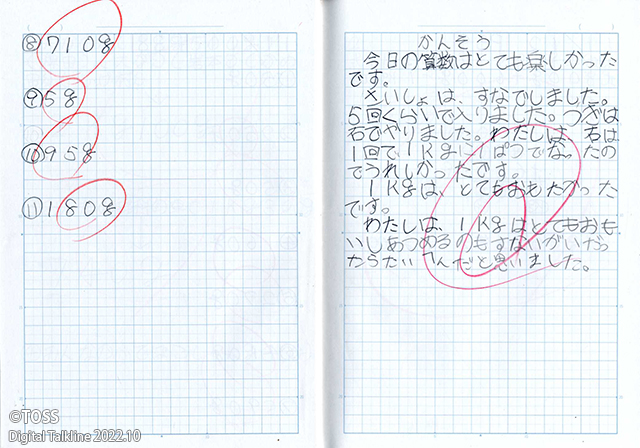 ⑧710g
⑨58
⑩958
⑪1808
かんそう
今日の算数はとても楽しかった
です。
さいしょは、すなでしました。
5回くらいで入りました。つぎは
石でやりました。わたしは、石は
1回で1Kgに、ぱつでな。たの
でうれしかったです。
1Kgは、とてもおもたかった
です。
わたしは、1Kgはとてもおも
いしあつめるのもすないがいだ
たいへんだと思いました。
©TOSS
Digital Talkline 2022.10